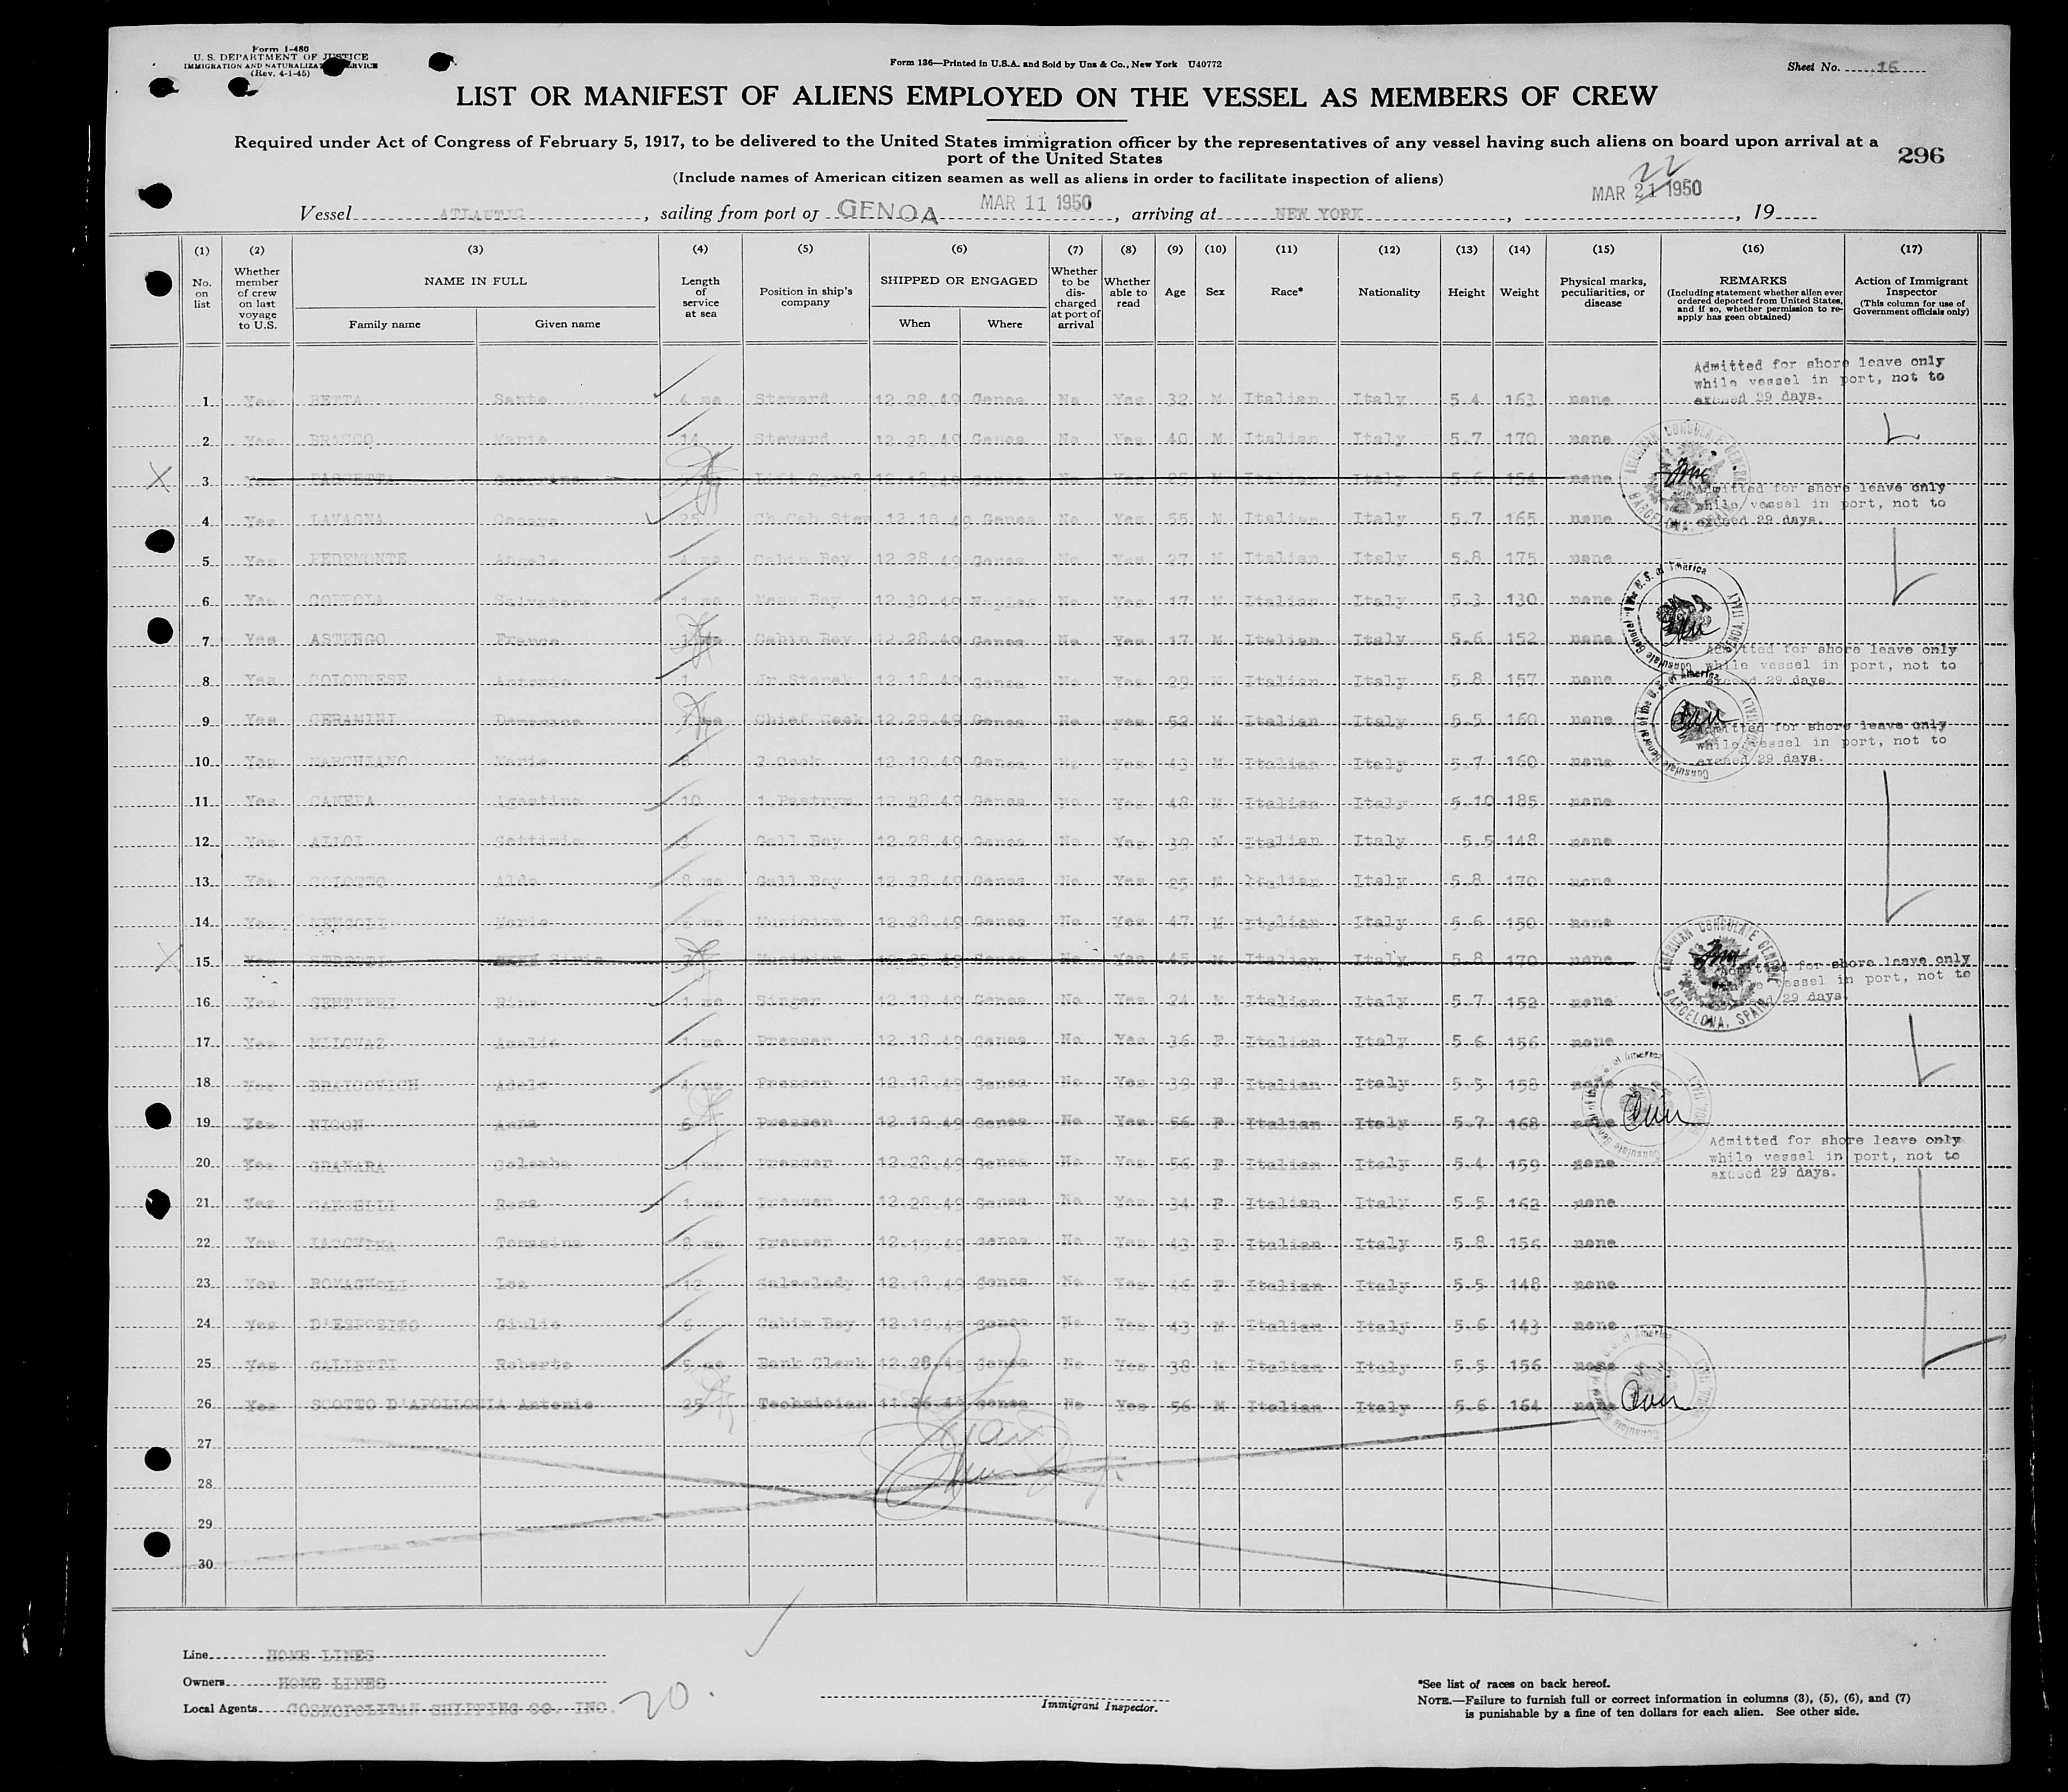 Form I-480
U. S. DEPARTMENT OF JUSTICE
IMMIGRATION AND NATURALIZATION SERVICE
(Rev. 4-1-45)
Form 136—Printed in U.S.A. and Sold by Unz & Co., New York U40772
Sheet No. 15
LIST OR MANIFEST OF ALIENS EMPLOYED ON THE VESSEL AS MEMBERS OF CREW
Required under Act of Congress of February 5, 1917, to be delivered to the United States immigration officer by the representatives of any vessel having such aliens on board upon arrival at a
port of the United States
296
(Include names of American citizen seamen as well as aliens in order to facilitate inspection of aliens)
22
Vessel ATLANTIC, sailing from port of GENOA MAR 11 1950, arriving at NEW YORK, MAR 21 1950, 19
(1) (2) (3) (4) (5) (6) (7) (8) (9) (10) (11) (12) (13) (14) (15) (16) (17)
No. on list
Whether member of crew on last voyage to U.S.
NAME IN FULL
Family name Given name
Length of service at sea
Position in ship's company
SHIPPED OR ENGAGED
When Where
Whether to be discharged at port of arrival
Whether able to read
Age
Sex
Race*
Nationality
Height
Weight
Physical marks, peculiarities, or disease
REMARKS
(Including statement whether alien ever ordered deported from United States, and if so, whether permission to re-apply has geen obtained)
Action of Immigrant Inspector
(This column for use of Government officials only)
Admitted for shore leave only
while vessel in port, not to
exceed 29 days.
1 Yes BETTA Sante 4 mo Steward 12.28.49 Genoa No Yes 32 M Italian Italy 5.4 163 none
2 Yes BRAGGO Mario 14 Steward 12.28.49 Genoa No Yes 40 M Italian Italy 5.7 170 none
3 Genoa No Yes M Italian Italy 5.6 154 none
4 Yes LAVAGNA 25 Ch Cab Stew 12.18.49 Genoa No Yes 55 M Italian Italy 5.7 165 none
5 Yes PEDEMONTE Angelo 4 mo Cabin Boy 12.28.49 Genoa No Yes 27 M Italian Italy 5.8 175 none
6 Yes COPPOLA Salvatore 1 mo Mess Boy 12.30.49 Naples No Yes 17 M Italian Italy 5.3 130 none
7 Yes ASTENGO Franco 1 mo Cabin Boy 12.28.49 Genoa No Yes 17 M Italian Italy 5.6 152 none
8 Yes COLOMBESE Antonio 1 Jr Storek 12.18.49 Genoa No Yes 29 M Italian Italy 5.8 157 none
9 Yes CERAMINI Domenico Chief Cook 12.29.49 Genoa No yes 52 M Italian Italy 5.5 160 none
10 Yes MARCHIANO Mario 2 Cook 12.18.49 Genoa No Yes 43 M Italian Italy 5.7 160 none
11 Yes CANEPA Agostino 10 1 Pastrym 12.28.49 Genoa No Yes 48 M Italian Italy 5.10 185 none
12 Yes ALLOI Settimio 3 Gall Boy 12.28.49 Genoa No Yes 39 M Italian Italy 5.5 148 none
13 Yes Aldo 8 mo Gall Boy 12.28.49 Genoa No Yes 25 M Italian Italy 5.8 170 none
14 Yes MENGOLI Mario 6 mo Musician 12.28.49 Genoa No Yes 47 M Italian Italy 5.6 150 none
15 Yes Sirio Musician 12.28.49 Genoa No Yes 45 M Italian Italy 5.8 170 none
16 Yes SENTIERI Rino 1 mo Singer 12.18.49 Genoa No Yes 24 M Italian Italy 5.7 152 none
17 Yes MILOVAZ Amalia 1 mo Presser 12.18.49 Genoa No Yes 36 F Italian Italy 5.6 156 none
18 Yes BRAICOVICH Adele 4 mo Presser 12.18.49 Genoa No Yes 39 F Italian Italy 5.5 158 none
19 Yes NIGON Anna 6 Presser 12.18.49 Genoa No Yes 56 F Italian Italy 5.7 168 none
20 Yes GRANARA Colomba 1 mo Presser 12.28.49 Genoa No Yes 56 F Italian Italy 5.4 159 none
21 Yes CANCELLI Rosa 1 mo Presser 12.28.49 Genoa No Yes 34 F Italian Italy 5.5 162 none
22 Yes IACOVINA Teresina 8 mo Presser 12.19.49 Genoa No Yes 43 F Italian Italy 5.8 156 none
23 Yes ROMAGNOLI Lea 12 Saleslady 12.18.49 Genoa No Yes 46 F Italian Italy 5.5 148 none
24 Yes D'ESPOSITO Giulio 6 Cabin Boy 12.19.49 Genoa No Yes 43 M Italian Italy 5.6 143 none
25 Yes GALLETTI Roberto 5 mo Bank Clerk 12.28.49 Genoa No Yes 38 M Italian Italy 5.5 156 none
26 Yes SCOTTO D'APOLLONIA Antonio 25 Technician 11.26.49 Genoa No Yes 56 M Italian Italy 5.6 164 none
27
28
29
30
AMERICAN CONSULATE GENERAL BARCELONA, SPAIN
Admitted for shore leave only
while vessel in port, not to
exceed 29 days.
Consulate General of the U.S. of America GENOA, ITALY
Admitted for shore leave only
while vessel in port, not to
exceed 29 days.
Consulate General of the U.S. of America GENOA, ITALY
Admitted for shore leave only
while vessel in port, not to
exceed 29 days.
AMERICAN CONSULATE GENERAL BARCELONA, SPAIN
Admitted for shore leave only
while vessel in port, not to
exceed 29 days.
Consulate General of the U.S. of America GENOA, ITALY
Admitted for shore leave only
while vessel in port, not to
exceed 29 days.
Consulate General of the U.S. of America GENOA, ITALY
Line HOME LINES
Owners HOME LINES
Local Agents COSMOPOLITAN SHIPPING CO. INC. 20.
Immigrant Inspector.
*See list of races on back hereof.
NOTE.—Failure to furnish full or correct information in columns (3), (5), (6), and (7)
is punishable by a fine of ten dollars for each alien. See other side.